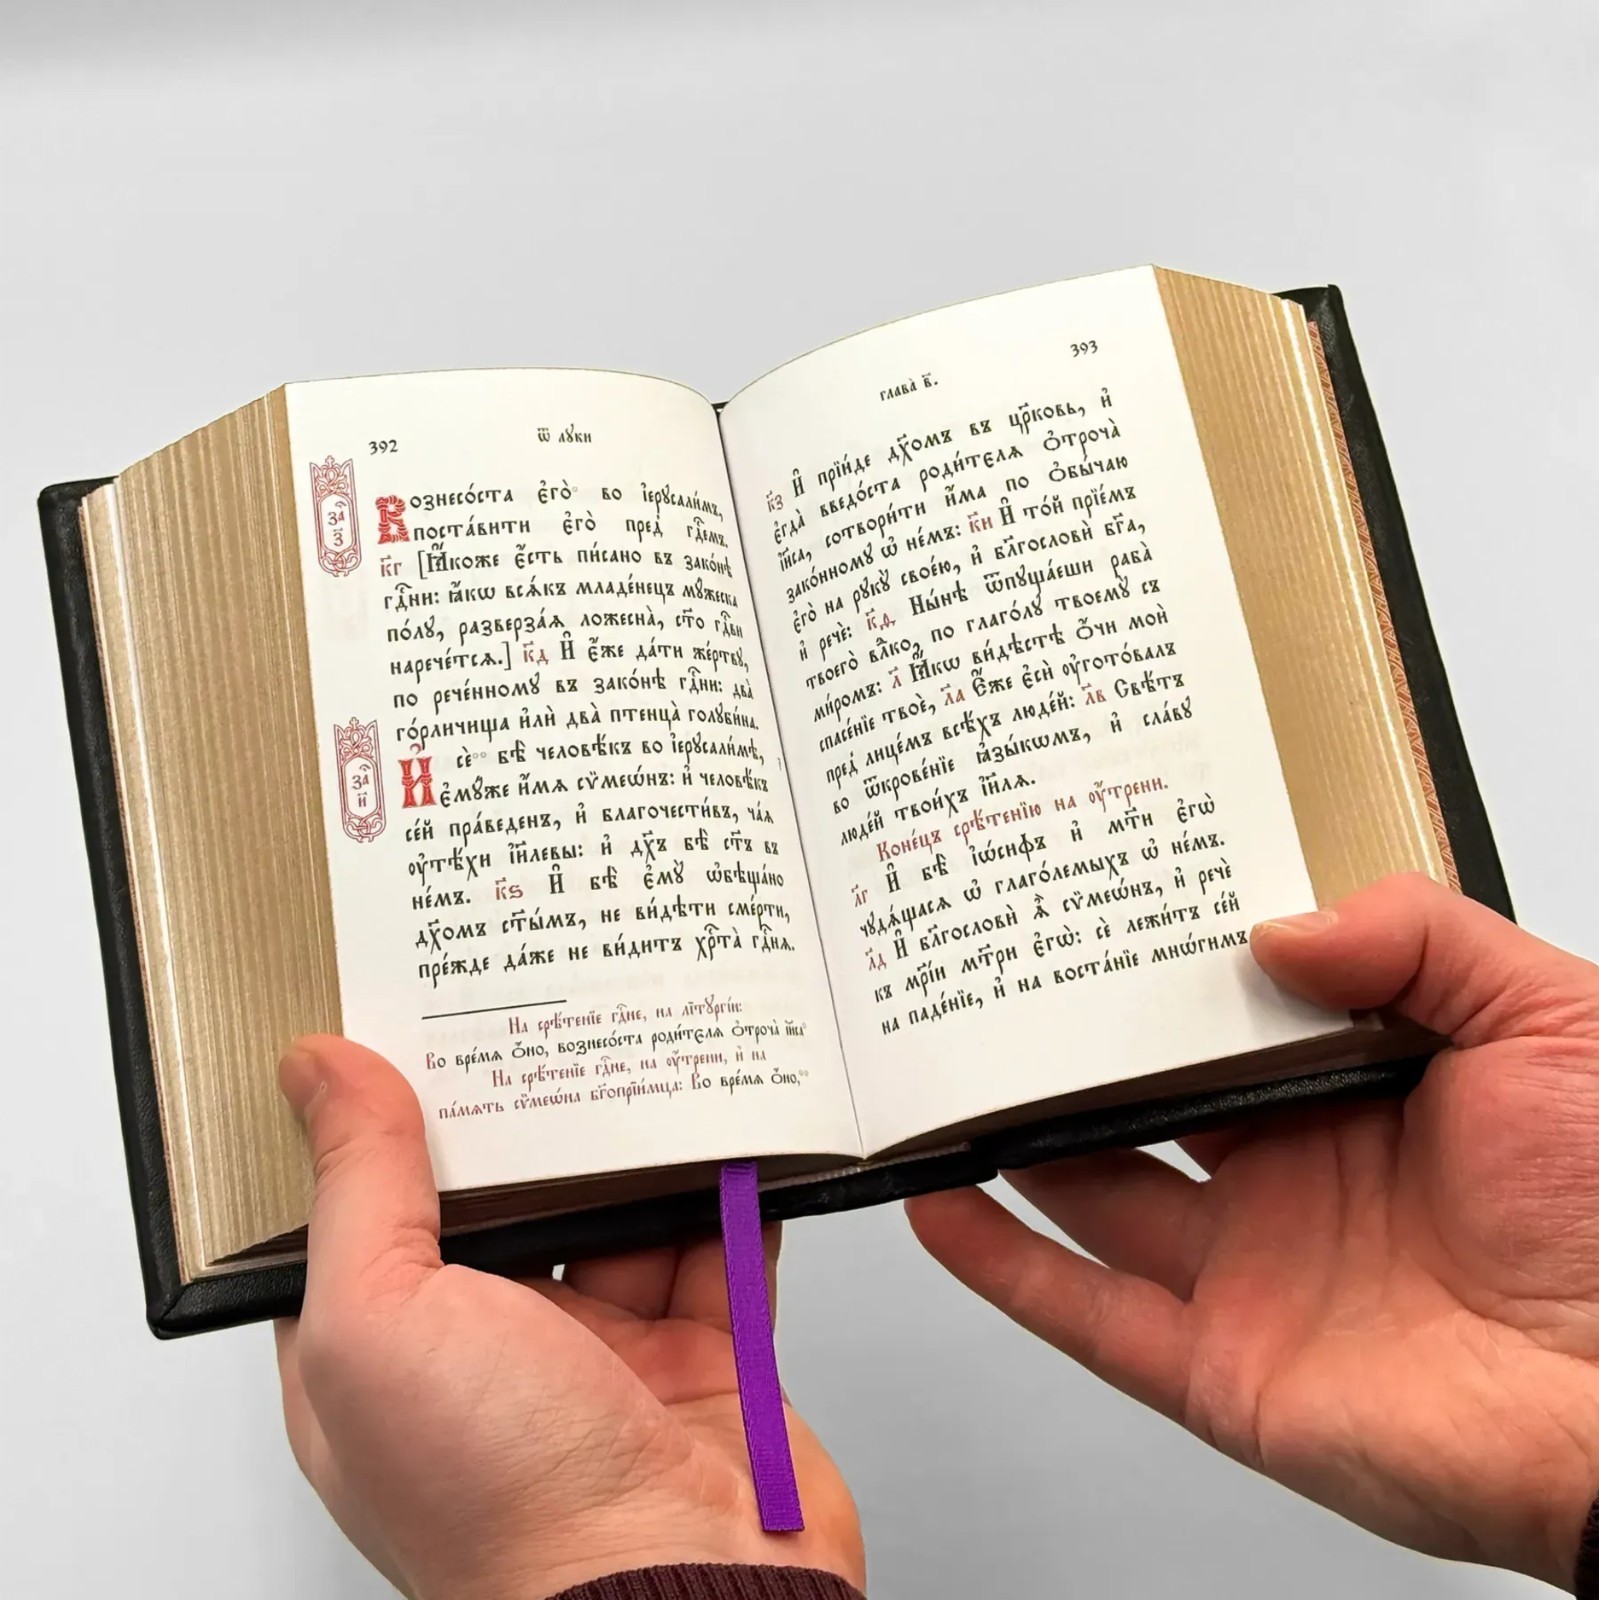 392
ѿ лꙋки
за҄ з҃
Вознесо́ста є҆го̀ во і҆ерꙋсали́мъ,
поста́вити є҆го̀ пред̾ гдⷭ҇емъ.
к҃г [Ꙗ҆́коже є҆́сть пи́сано въ зако́нѣ
гдⷭ҇ни: ꙗ҆́кѡ всѧ́къ младе́нецъ мꙋ́жеска
по́лꙋ, разверза́ѧ ложесна̀, ст҃о гдⷭ҇ви
нарече́тсѧ.] к҃д И҆ є҆́же да́ти же́ртвꙋ,
по рече́нномꙋ въ зако́нѣ гдⷭ҇ни: два̀
го́рличища и҆лѝ два̀ птенца̀ голꙋби̑на.
за҄ и҃
И҆ сѐ бѣ̀ человѣ́къ во і҆ерꙋсали́мѣ,
є҆мꙋ́же и҆́мѧ сѷмеѡ́нъ: и҆ человѣ́къ
се́й пра́веденъ, и҆ благочести́въ, ча́ѧ
ᲂу҆тѣ́хи і҆и҃левы: и҆ дх҃ъ бѣ̀ ст҃ъ въ
не́мъ. к҃ѕ И҆ бѣ̀ є҆мꙋ̀ ѡ҆бѣща́но
дх҃омъ ст҃ы́мъ, не ви́дѣти сме́рти,
пре́жде да́же не ви́дитъ хрⷭ҇та̀ гдⷭ҇нѧ.
На срѣ́тенїе гдⷭ҇не, на літꙋргі́и:
Во вре́мѧ ѻ҆́но, вознесо́ста роди́телѧ ѻ҆троча̀ і҆и҃са
На срѣ́тенїе гдⷭ҇не, на ᲂу҆́трени, и҆ на
па́мѧть сѷмеѡ́на бг҃опрїи́мца: Во вре́мѧ ѻ҆́но,
393
глава̀ в҃.
к҃з И҆ прїи́де дх҃омъ въ цр҃ковь, и҆
є҆гда̀ введо́ста роди́телѧ ѻ҆троча̀
і҆и҃са, сотвори́ти и҆̀ма по ѻ҆бы́чаю
зако́нномꙋ ѡ҆ не́мъ: к҃и И҆ то́й прїе́мъ
є҆го̀ на рꙋкꙋ̀ своє́ю, и҆ бл҃гословѝ бг҃а,
и҆ речѐ: к҃ѳ Ны́нѣ ѿпꙋща́еши раба̀
твоего̀ влⷣко, по глаго́лꙋ твоемꙋ̀ съ
ми́ромъ: л҃ Ꙗ҆́кѡ ви́дѣстѣ ѻ҆́чи моѝ
спасе́нїе твоѐ, л҃а Є҆́же є҆сѝ ᲂу҆гото́валъ
пред̾ лице́мъ всѣ́хъ люде́й: л҃в Свѣ́тъ
во ѿкрове́нїе ꙗ҆зы́кѡмъ, и҆ сла́вꙋ
люде́й твои́хъ і҆и҃лѧ.
Коне́цъ срѣ́тенїю на ᲂу҆́трени.
л҃г И҆ бѣ̀ і҆ѡ́сифъ и҆ мт҃и є҆гѡ̀
чꙋдѧ́щасѧ ѡ҆ глаго́лемыхъ ѡ҆ не́мъ.
л҃д И҆ бл҃гословѝ ѧ҆̀ сѷмеѡ́нъ, и҆ речѐ
къ мр҃і́и мт҃ри є҆гѡ̀: сѐ лежи́тъ се́й
на паде́нїе, и҆ на воста́нїе мнѡ́гимъ